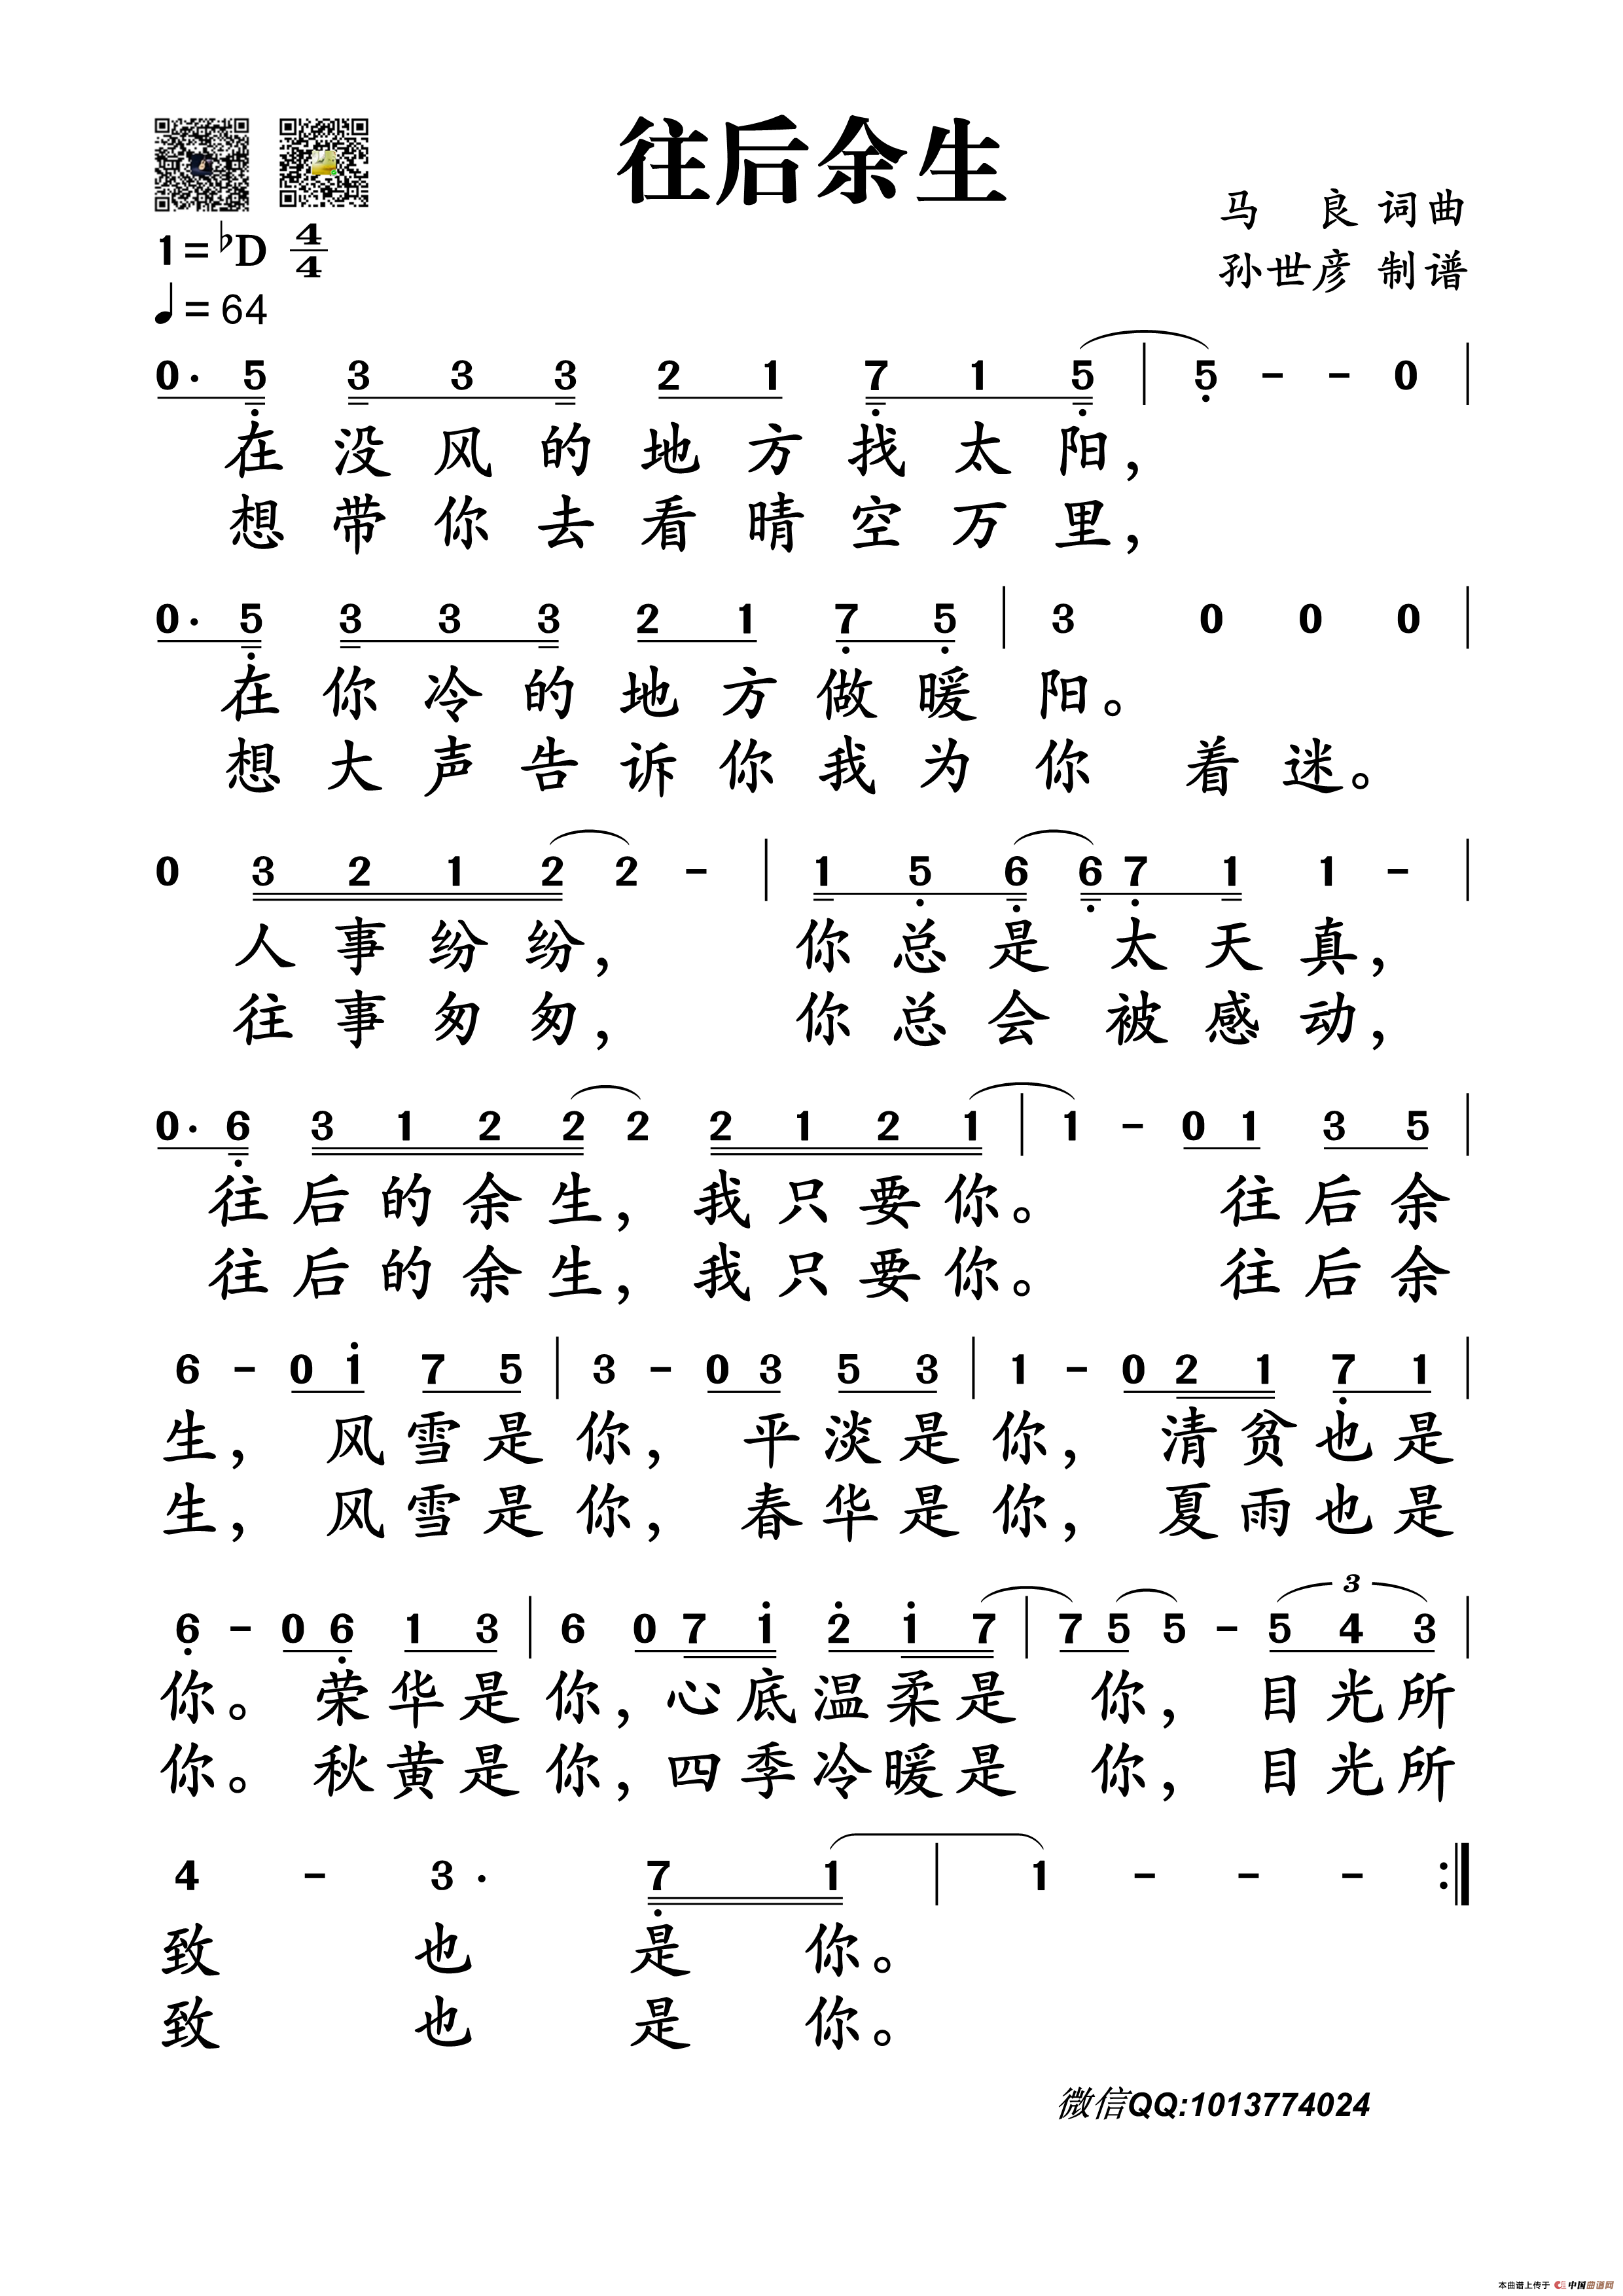 往后余生
马 良 词曲
1=♭D 4/4
孙世彦 制谱
♩=64
0· 5 3 3 3 2 1 7 1 5 | 5 - - 0 |
在没风的地方找太阳，
想带你去看晴空万里，
0· 5 3 3 3 2 1 7 5 | 3 0 0 0 |
在你冷的地方做暖阳。
想大声告诉你我为你着迷。
0 3 2 1 2 2 - | 1 5 6 6 7 1 1 - |
人事纷纷， 你总是太天真，
往事匆匆， 你总会被感动，
0· 6 3 1 2 2 2 2 1 2 1 | 1 - 0 1 3 5 |
往后的余生，我只要你。 往后余
往后的余生，我只要你。 往后余
6 - 0 1 7 5 | 3 - 0 3 5 3 | 1 - 0 2 1 7 1 |
生， 风雪是你， 平淡是你， 清贫也是
生， 风雪是你， 春华是你， 夏雨也是
3
6 - 0 6 1 3 | 6 0 7 1 2 1 7 | 7 5 5 - 5 4 3 |
你。荣华是你，心底温柔是 你， 目光所
你。秋黄是你，四季冷暖是 你， 目光所
4 - 3· 7 1 | 1 - - - :|
致 也 是 你。
致 也 是 你。
微信QQ:1013774024
本曲谱上传于 中国曲谱网